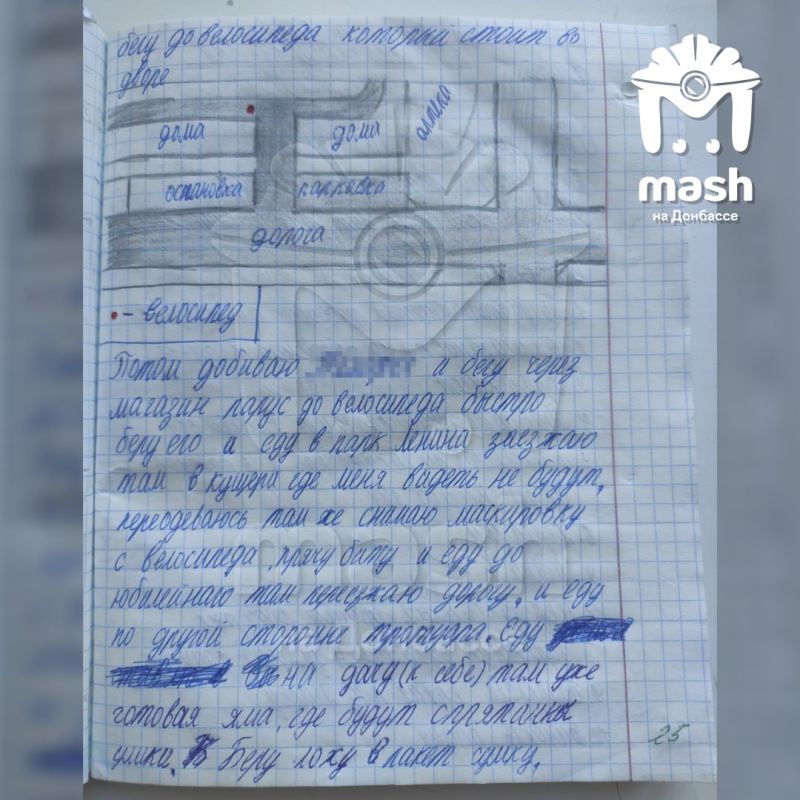 бегу до велосипеда который стоит во
дворе
дома
дома
аптека
остановка
парковка
дорога
• - велосипед
Потом добиваю и бегу через
магазин парус до велосипеда быстро
беру его и еду в парк Ленина заезжаю
там в кущери где меня видеть не будут,
переодеваюсь там же снимаю маскировку
с велосипеда, прячу биту и еду до
юбилейнаго там переезжаю дорогу, и еду
по другой стороне тротуара. Еду
на дачу (к себе) там уже
готовая яма, где будут спрятанны
улики. Беру лоху в пакет сумку,
25
mash
на Донбассе